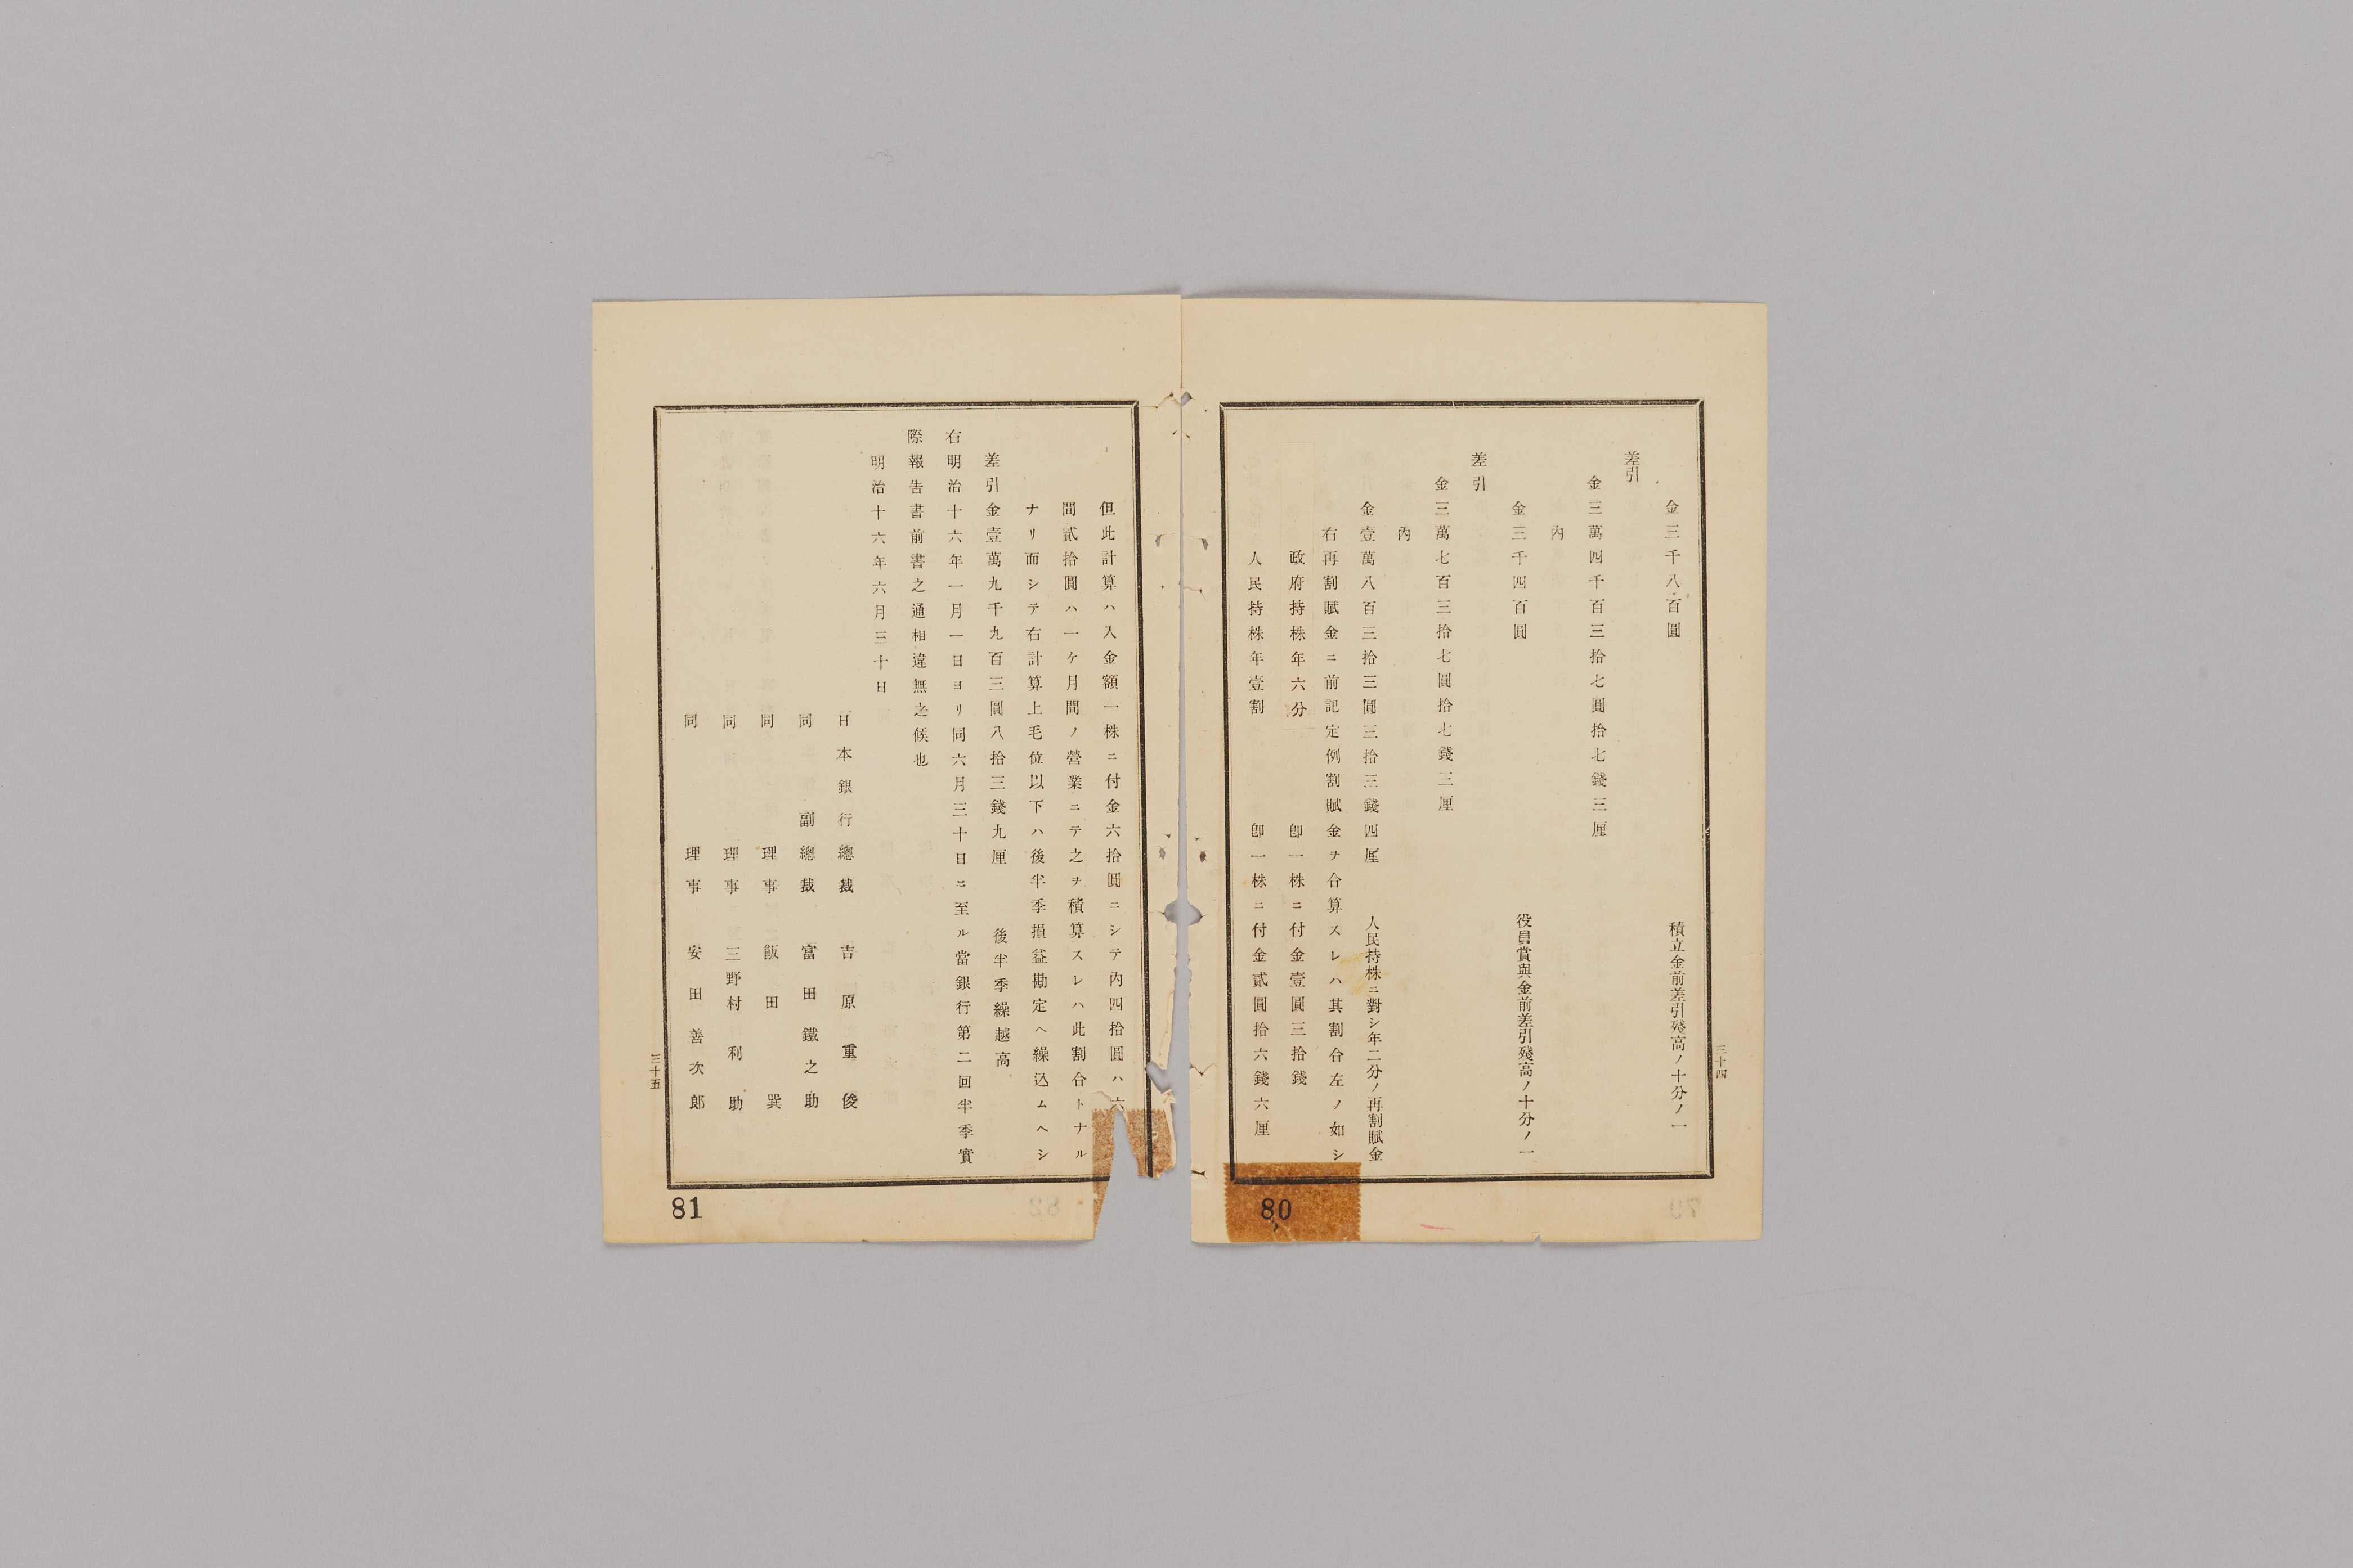 金三千八百圓　積立金前差引殘高ノ十分ノ一
差引
金三萬四千百三拾七圓拾七錢三厘
內
金三千四百圓　役員賞與金前差引殘高ノ十分ノ一
差引
金三萬七百三拾七圓拾七錢三厘
內
金壹萬八百三拾三圓三拾三錢四厘　人民持株ニ對シ年二分ノ再割賦金
右再割賦金ニ前記定例割賦金ヲ合算スレハ其割合左ノ如シ
政府持株年六分　卽一株ニ付金壹圓三拾錢
人民持株年壹割　卽一株ニ付金貳圓拾六錢六厘
三十四
80
但此計算ハ入金額一株ニ付金六拾圓ニシテ內四拾圓ハ六
間貳拾圓ハ一ケ月間ノ營業ニテ之ヲ積算スレハ此割合トナル
ナリ而シテ右計算上毛位以下ハ後半季損益勘定ヘ繰込ムヘシ
差引金壹萬九千九百三圓八拾三錢九厘　後半季繰越高
右明治十六年一月一日ヨリ同六月三十日ニ至ル當銀行第二回半季實
際報告書前書之通相違無之候也
明治十六年六月三十日
日本銀行總裁　吉原重俊
同　副總裁　富田鐵之助
同　理事　飯田巽
同　理事　三野村利助
同　理事　安田善次郎
三十五
81